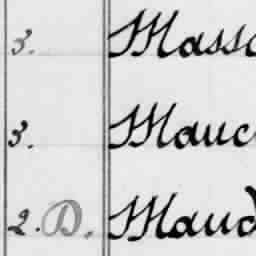 3. Mass
3. Mauc
2. D. Maud